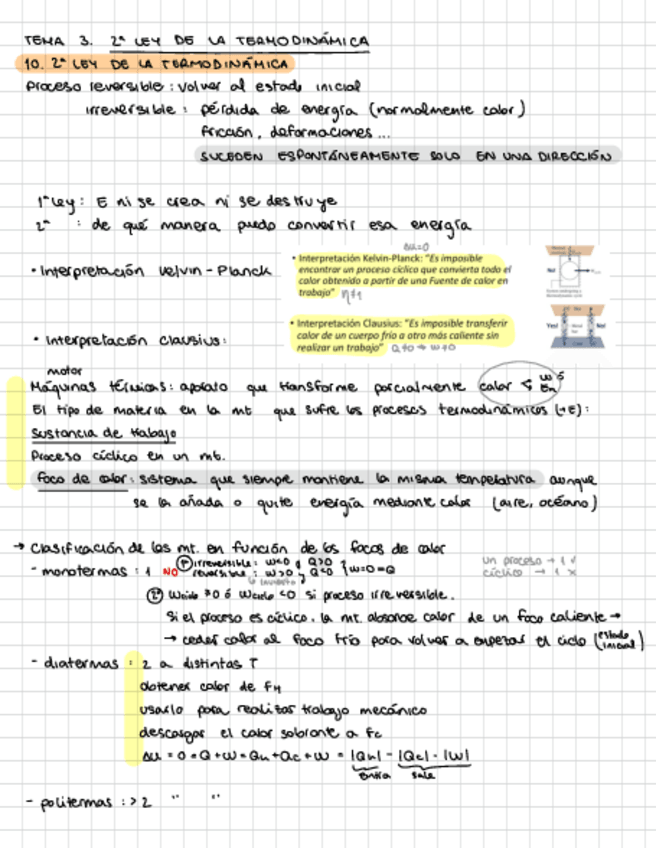 TEMA 3. 2ª LEY DE LA TERMODINÁMICA
10. 2ª LEY DE LA TERMODINÁMICA
Proceso reversible: volver al estado inicial
irreversible: pérdida de energía (normalmente calor)
fricción, deformaciones...
SUCEDEN ESPONTÁNEAMENTE SOLO EN UNA DIRECCIÓN
1ª Ley: E ni se crea ni se destruye
2ª : de qué manera puedo convertir esa energía
ΔU=0
• Interpretación Kelvin-Planck
• Interpretación Kelvin-Planck: "Es imposible
encontrar un proceso cíclico que convierta todo el
calor obtenido a partir de una Fuente de calor en
trabajo" η≠1
• Interpretación Clausius:
• Interpretación Clausius: "Es imposible transferir
calor de un cuerpo frío a otro más caliente sin
realizar un trabajo" Q≠0 → W≠0
Yes! No!
motor
Máquinas térmicas: aparato que transforme parcialmente calor
El tipo de materia en la mt que sufre los procesos termodinámicos (→E):
Sustancia de trabajo
Proceso cíclico en un mt.
foco de calor: sistema que siempre mantiene la misma temperatura aunque
se la añada o quite energía mediante calor (aire, océano)
→ Clasificación de las mt. en función de los focos de calor
- monotermas: 1 NO ① irreversible: W<0 y Q>0
reversible: W>0 y Q<0 } W=0=Q
un proceso → 1 ✓
cíclico → 1 ×
② Wciclo ≠0 ó Wciclo <0 si proceso irreversible.
Si el proceso es cíclico, la mt. absorbe calor de un foco caliente →
→ ceder calor al foco frío para volver a empezar el ciclo (estado inicial)
- diatermas: 2 a distintas T
obtener calor de FH
usarlo para realizar trabajo mecánico
descargar el calor sobrante a Fc
ΔU = 0 = Q+W = QH+Qc+W = |QH| - |Qc| - |W|
entra sale
- politermas: >2 " "